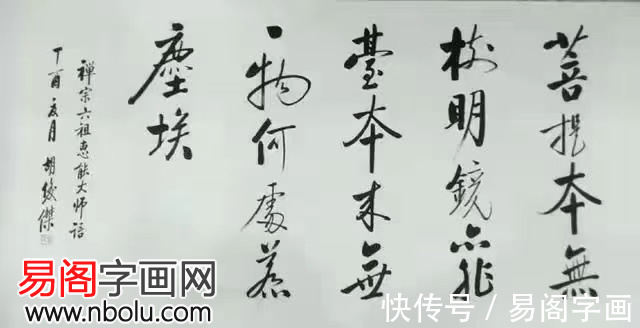 菩提本無
树明鏡亦非
臺本来無
一物何處惹
塵埃
禪宗六祖惠能大师語
丁酉夏月 胡 傑
易阁字画网
www.nbolu.com
快传号 / 易阁字画